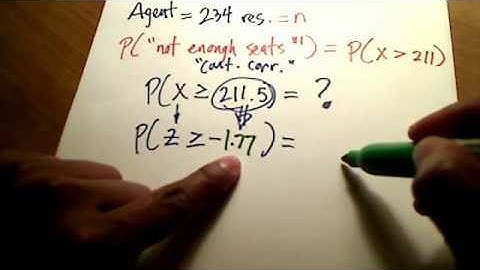 Agent = 234 res. = n
P("not enough seats"!) = P(X > 211)
"Cont. corr."
P(X ≥ 211.5) = ?
P(Z ≥ -1.77) =